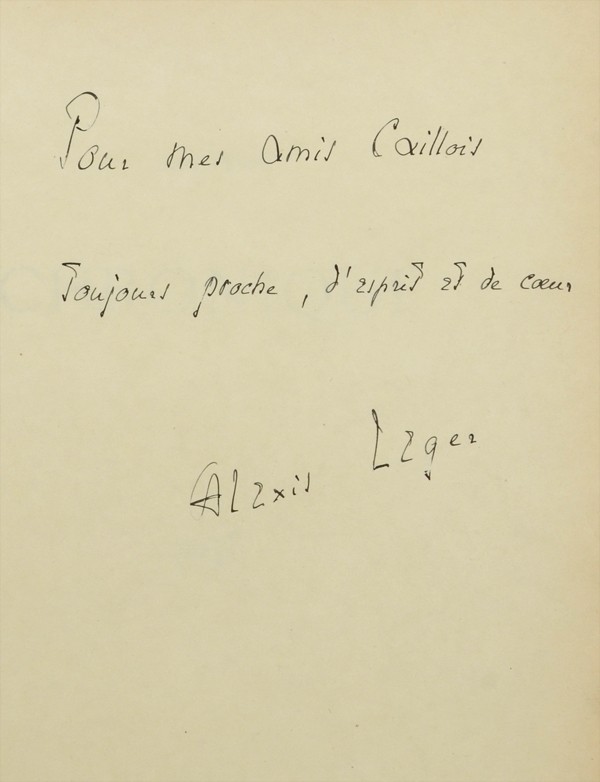 Pour mes amis Caillois
Toujours proche, d'esprit et de cœur
Alexis Leger